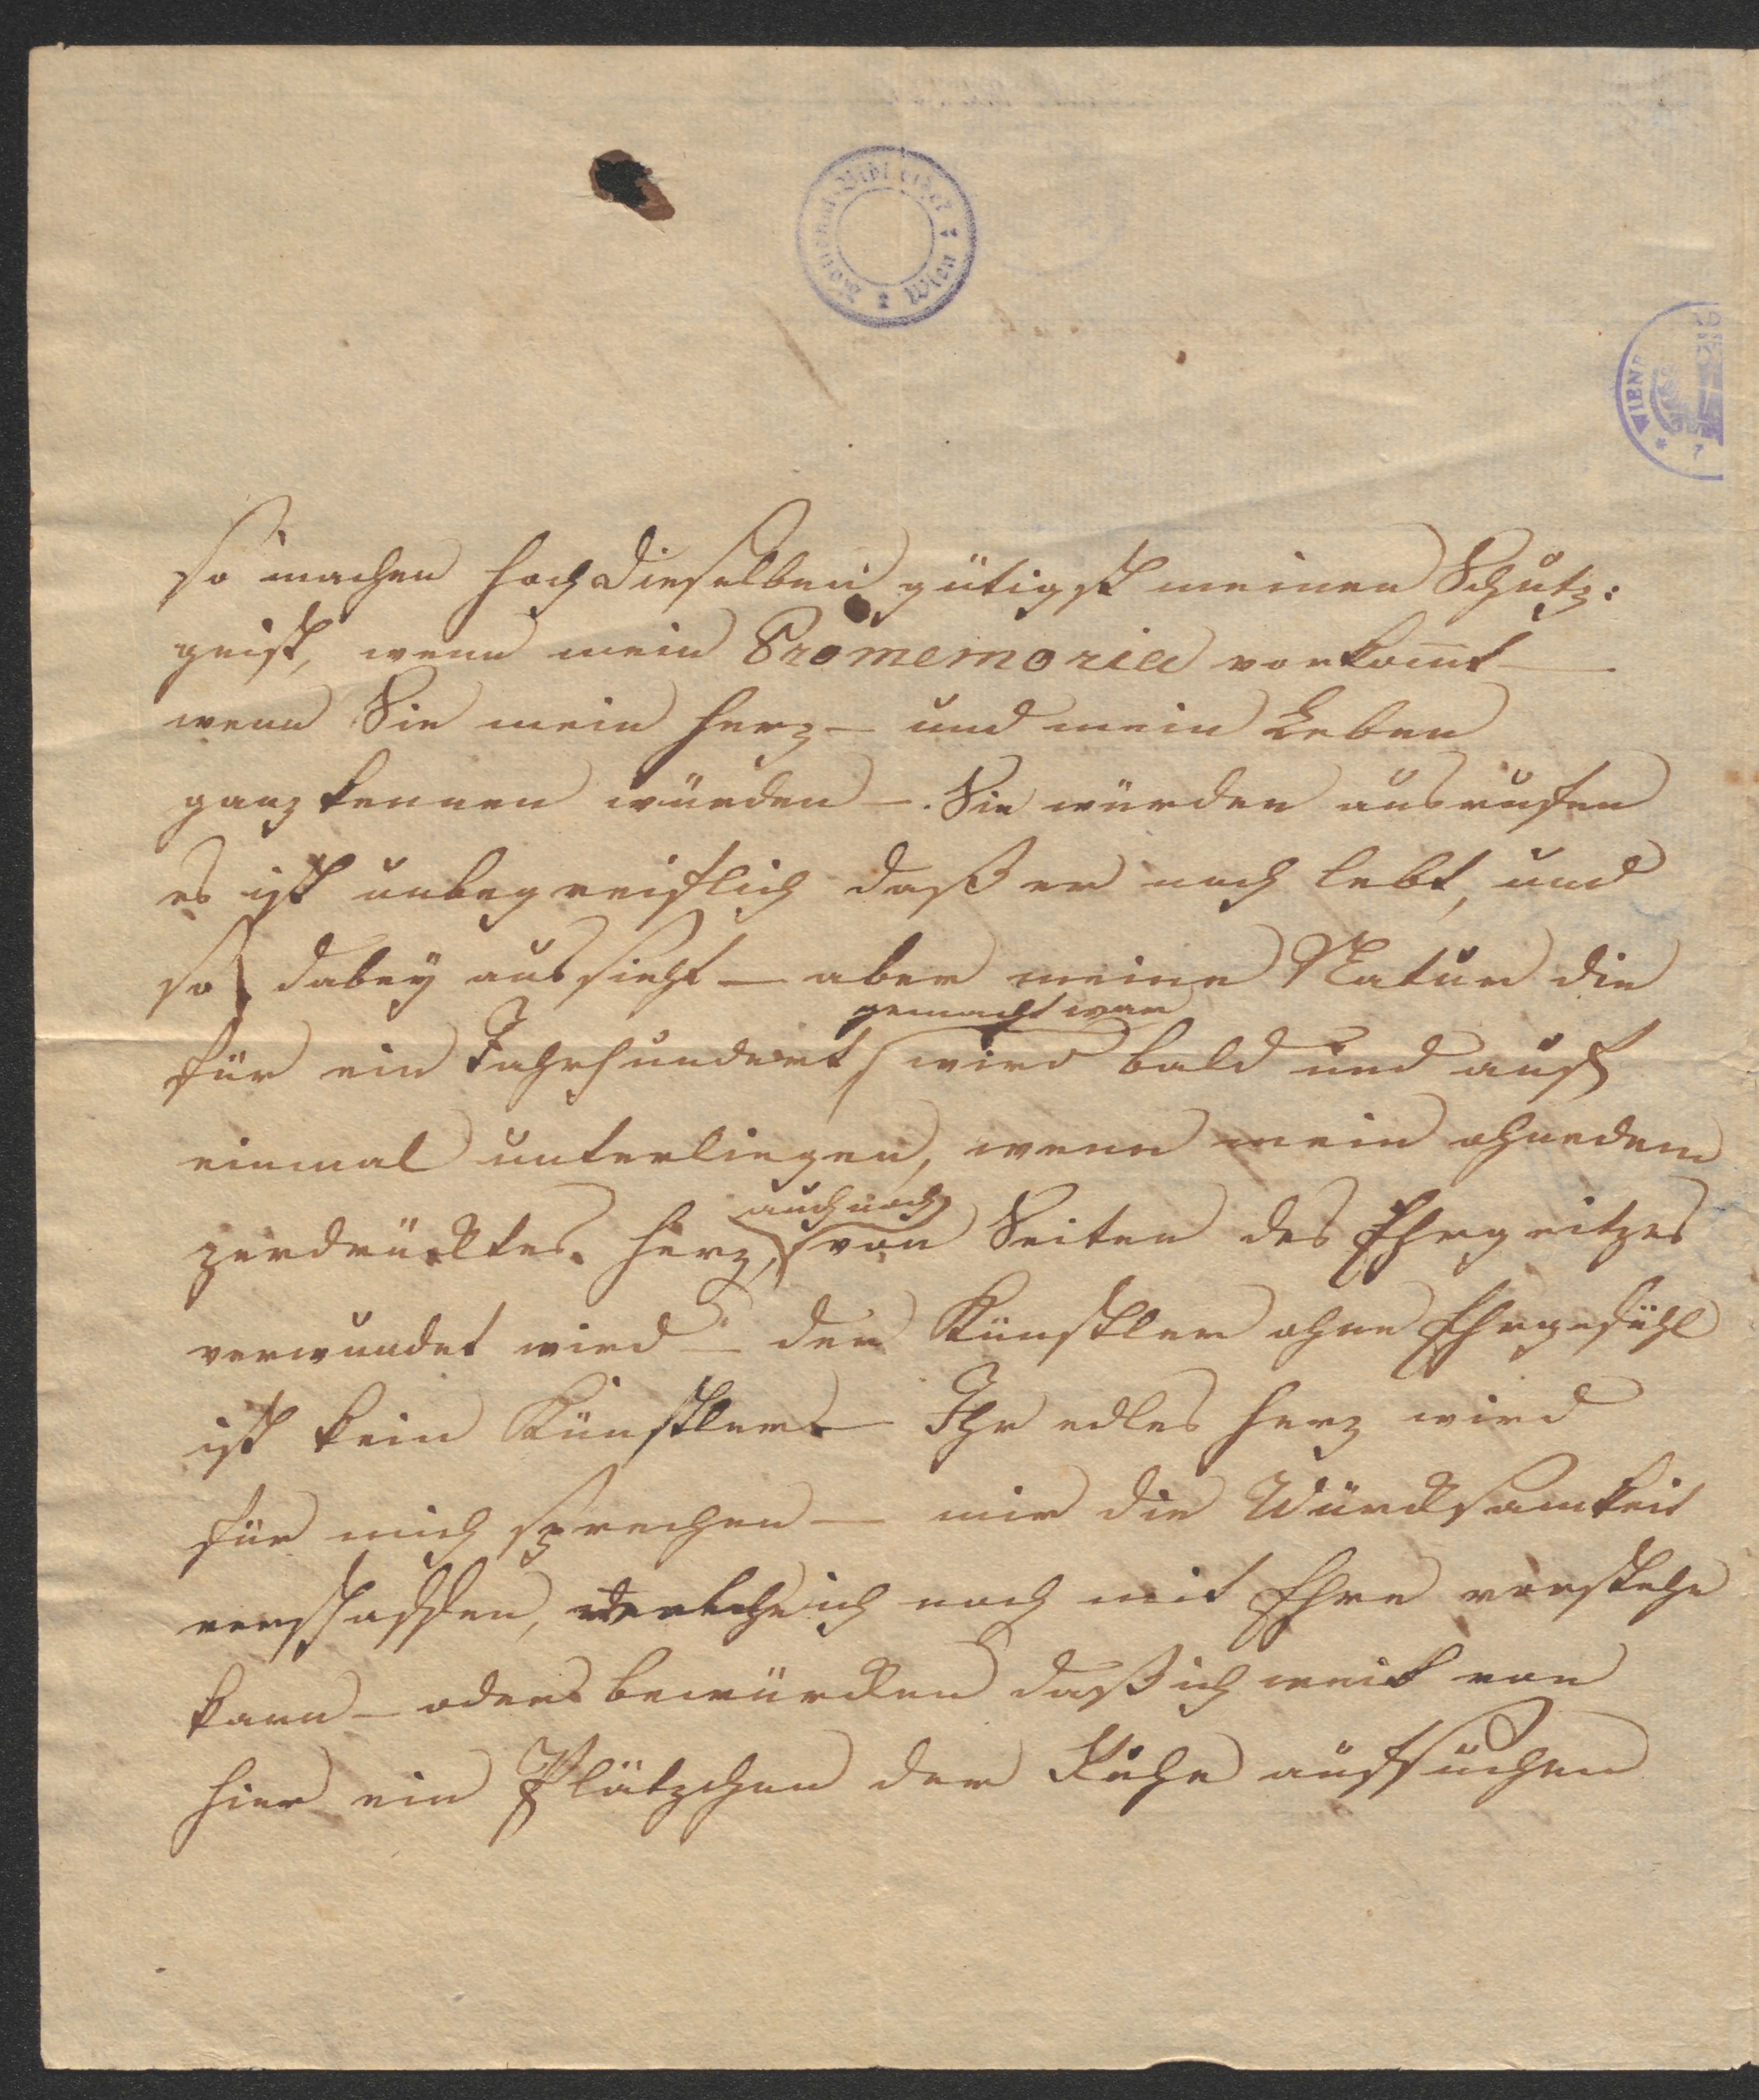 Kommunal-Bibliothek Wien
WIENE
so machen hochdieselben gütigst meinen Schutz:
geist, wenn mein Promemoria vorkom̄t —
wenn Sie mein Herz — und mein Leben
ganz kennen würden —. Sie würden ausrufen
es ist unbegreiflich daß er noch lebt, und
so dabey aussieht — aber meine Natur die
gemacht war
für ein Jahrhundert wird bald und auf
einmal unterliegen, wenn mein ohnedem
auch noch
zerdrücktes Herz, von Seiten des Ehrgeitzes
verwundet wird — der Künstler ohne Ehrgefühl
ist kein Künstler. — Ihr edles Herz wird
für mich sprechen — mir die Würcksamkeit
verschaffen, welche ich noch mit Ehre vorstehe
kann — oder bewürcken daß ich weit von
hier ein Plätzchen der Ruhe aufsuchen